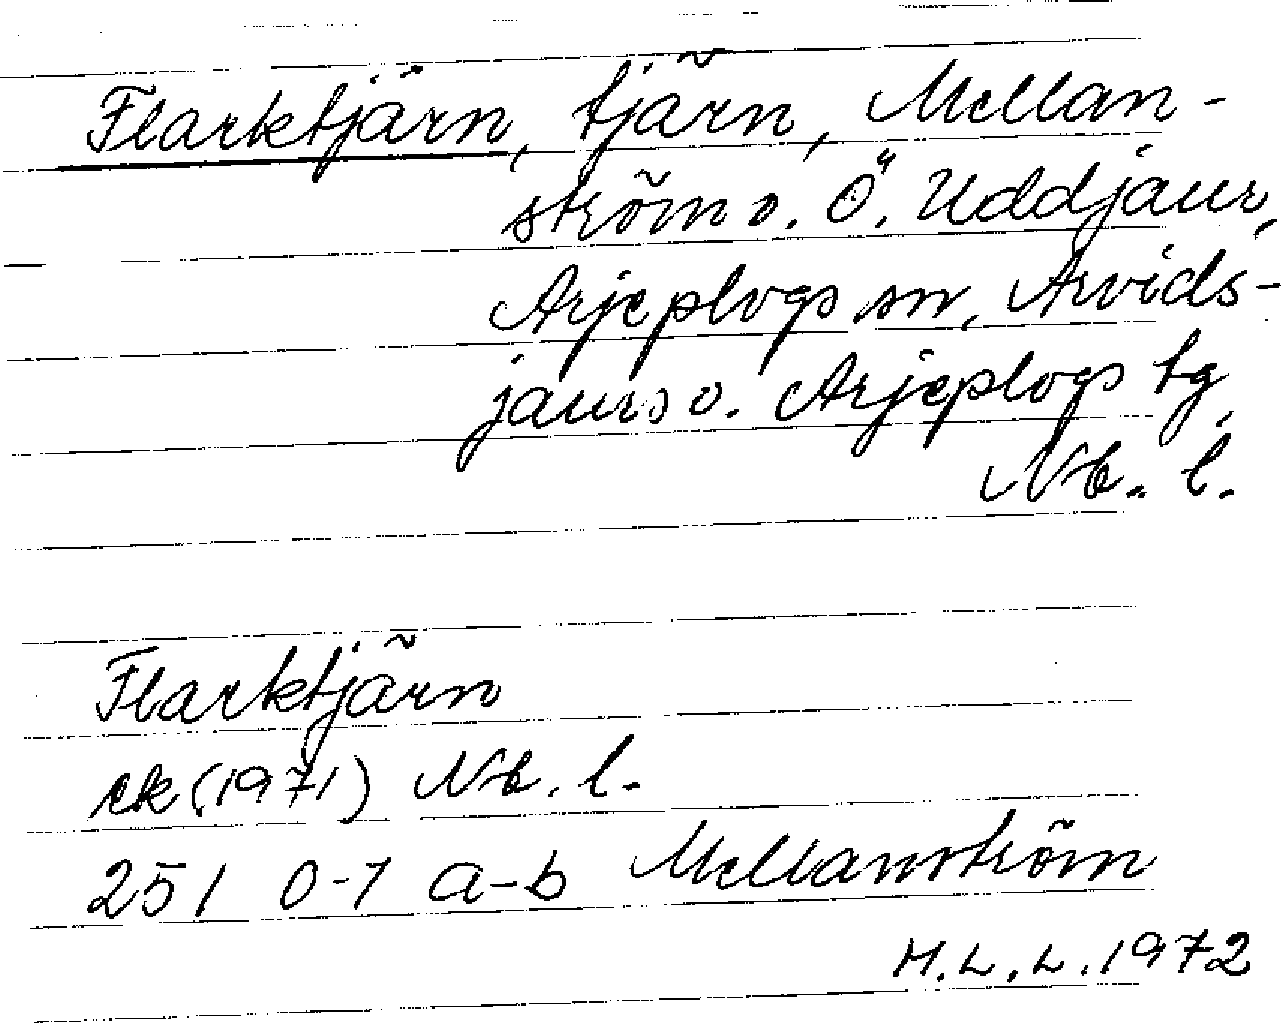 Flarktjärn, tjärn, Mellan-
ström o. Ö. Uddjaur,
Arjeplogs sn, Arvids-
jaurs o. Arjeplogs tg,
Nb. l.
Flarktjärn
ek (1971) Nb. l.
251 0-1 a-b Mellanström
H.L.L. 1972